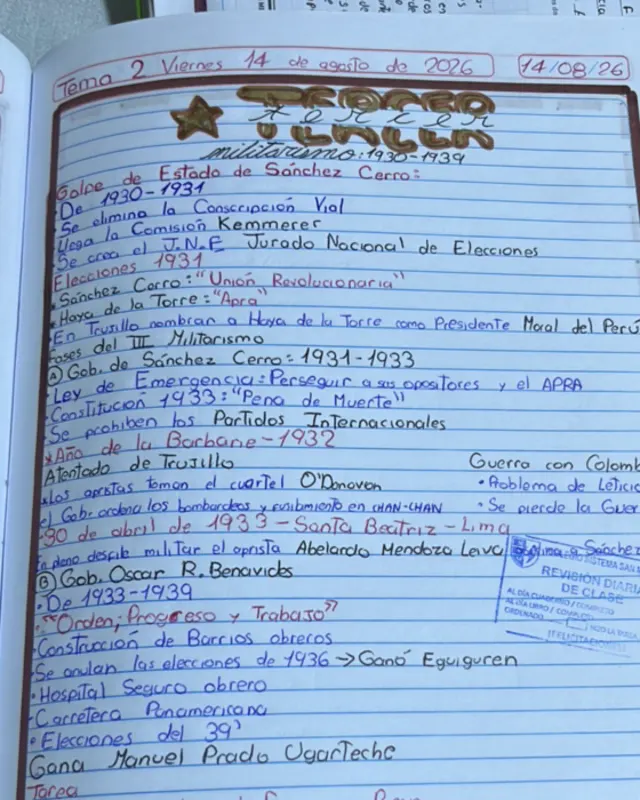 Tema 2 Viernes 14 de agosto de 2026 14/08/26
Tercer
militarismo: 1930-1939
Golpe de Estado de Sánchez Cerro:
De 1930-1931
Se elimina la Conscripción Vial
Llega la Comisión Kemmerer
Se crea el J.N.E Jurado Nacional de Elecciones
Elecciones 1931
Sánchez Cerro: "Unión Revolucionaria"
Haya de la Torre: "Apra"
En Trujillo nombran a Haya de la Torre como Presidente Moral del Perú
Fases del III Militarismo
A Gob. de Sánchez Cerro: 1931-1933
Ley de Emergencia: Perseguir a sus opositores y el APRA
Constitución 1933: "Pena de Muerte"
Se prohiben los Partidos Internacionales
*Año de la Barbarie-1932
Atentado de Trujillo Guerra con Colomb
Los apristas toman el cuartel O'Donovan • Problema de Leticia
el Gob. ordena los bombardeos y en CHAN-CHAN • Se pierde la Guer
30 de abril de 1933-Santa Beatriz-Lima
En pleno desfile militar el aprista Abelardo Mendoza Leiva a Sánchez
B Gob. Oscar R. Benavides
• De 1933-1939
"Orden, Progreso y Trabajo"
Construcción de Barrios obreros
Se anulan las elecciones de 1936 → Ganó Eguiguren
• Hospital Seguro obrero
Carretera Panamericana
• Elecciones del 39'
Gana Manuel Prado Ugarteche
Tarea
REVISIÓN DIARIA
DE CLASE